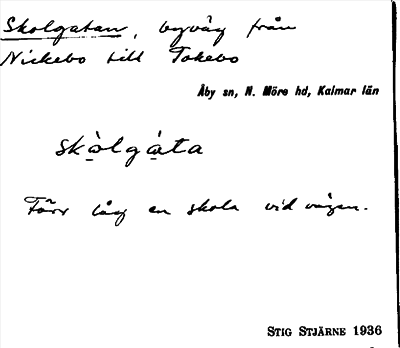 Skolgatan, byväg från
Nickebo till Tokebo
Åby sn, N. Möre hd, Kalmar län
skòlgàta
Förr låg en skola vid vägen.
STIG STJÄRNE 1936